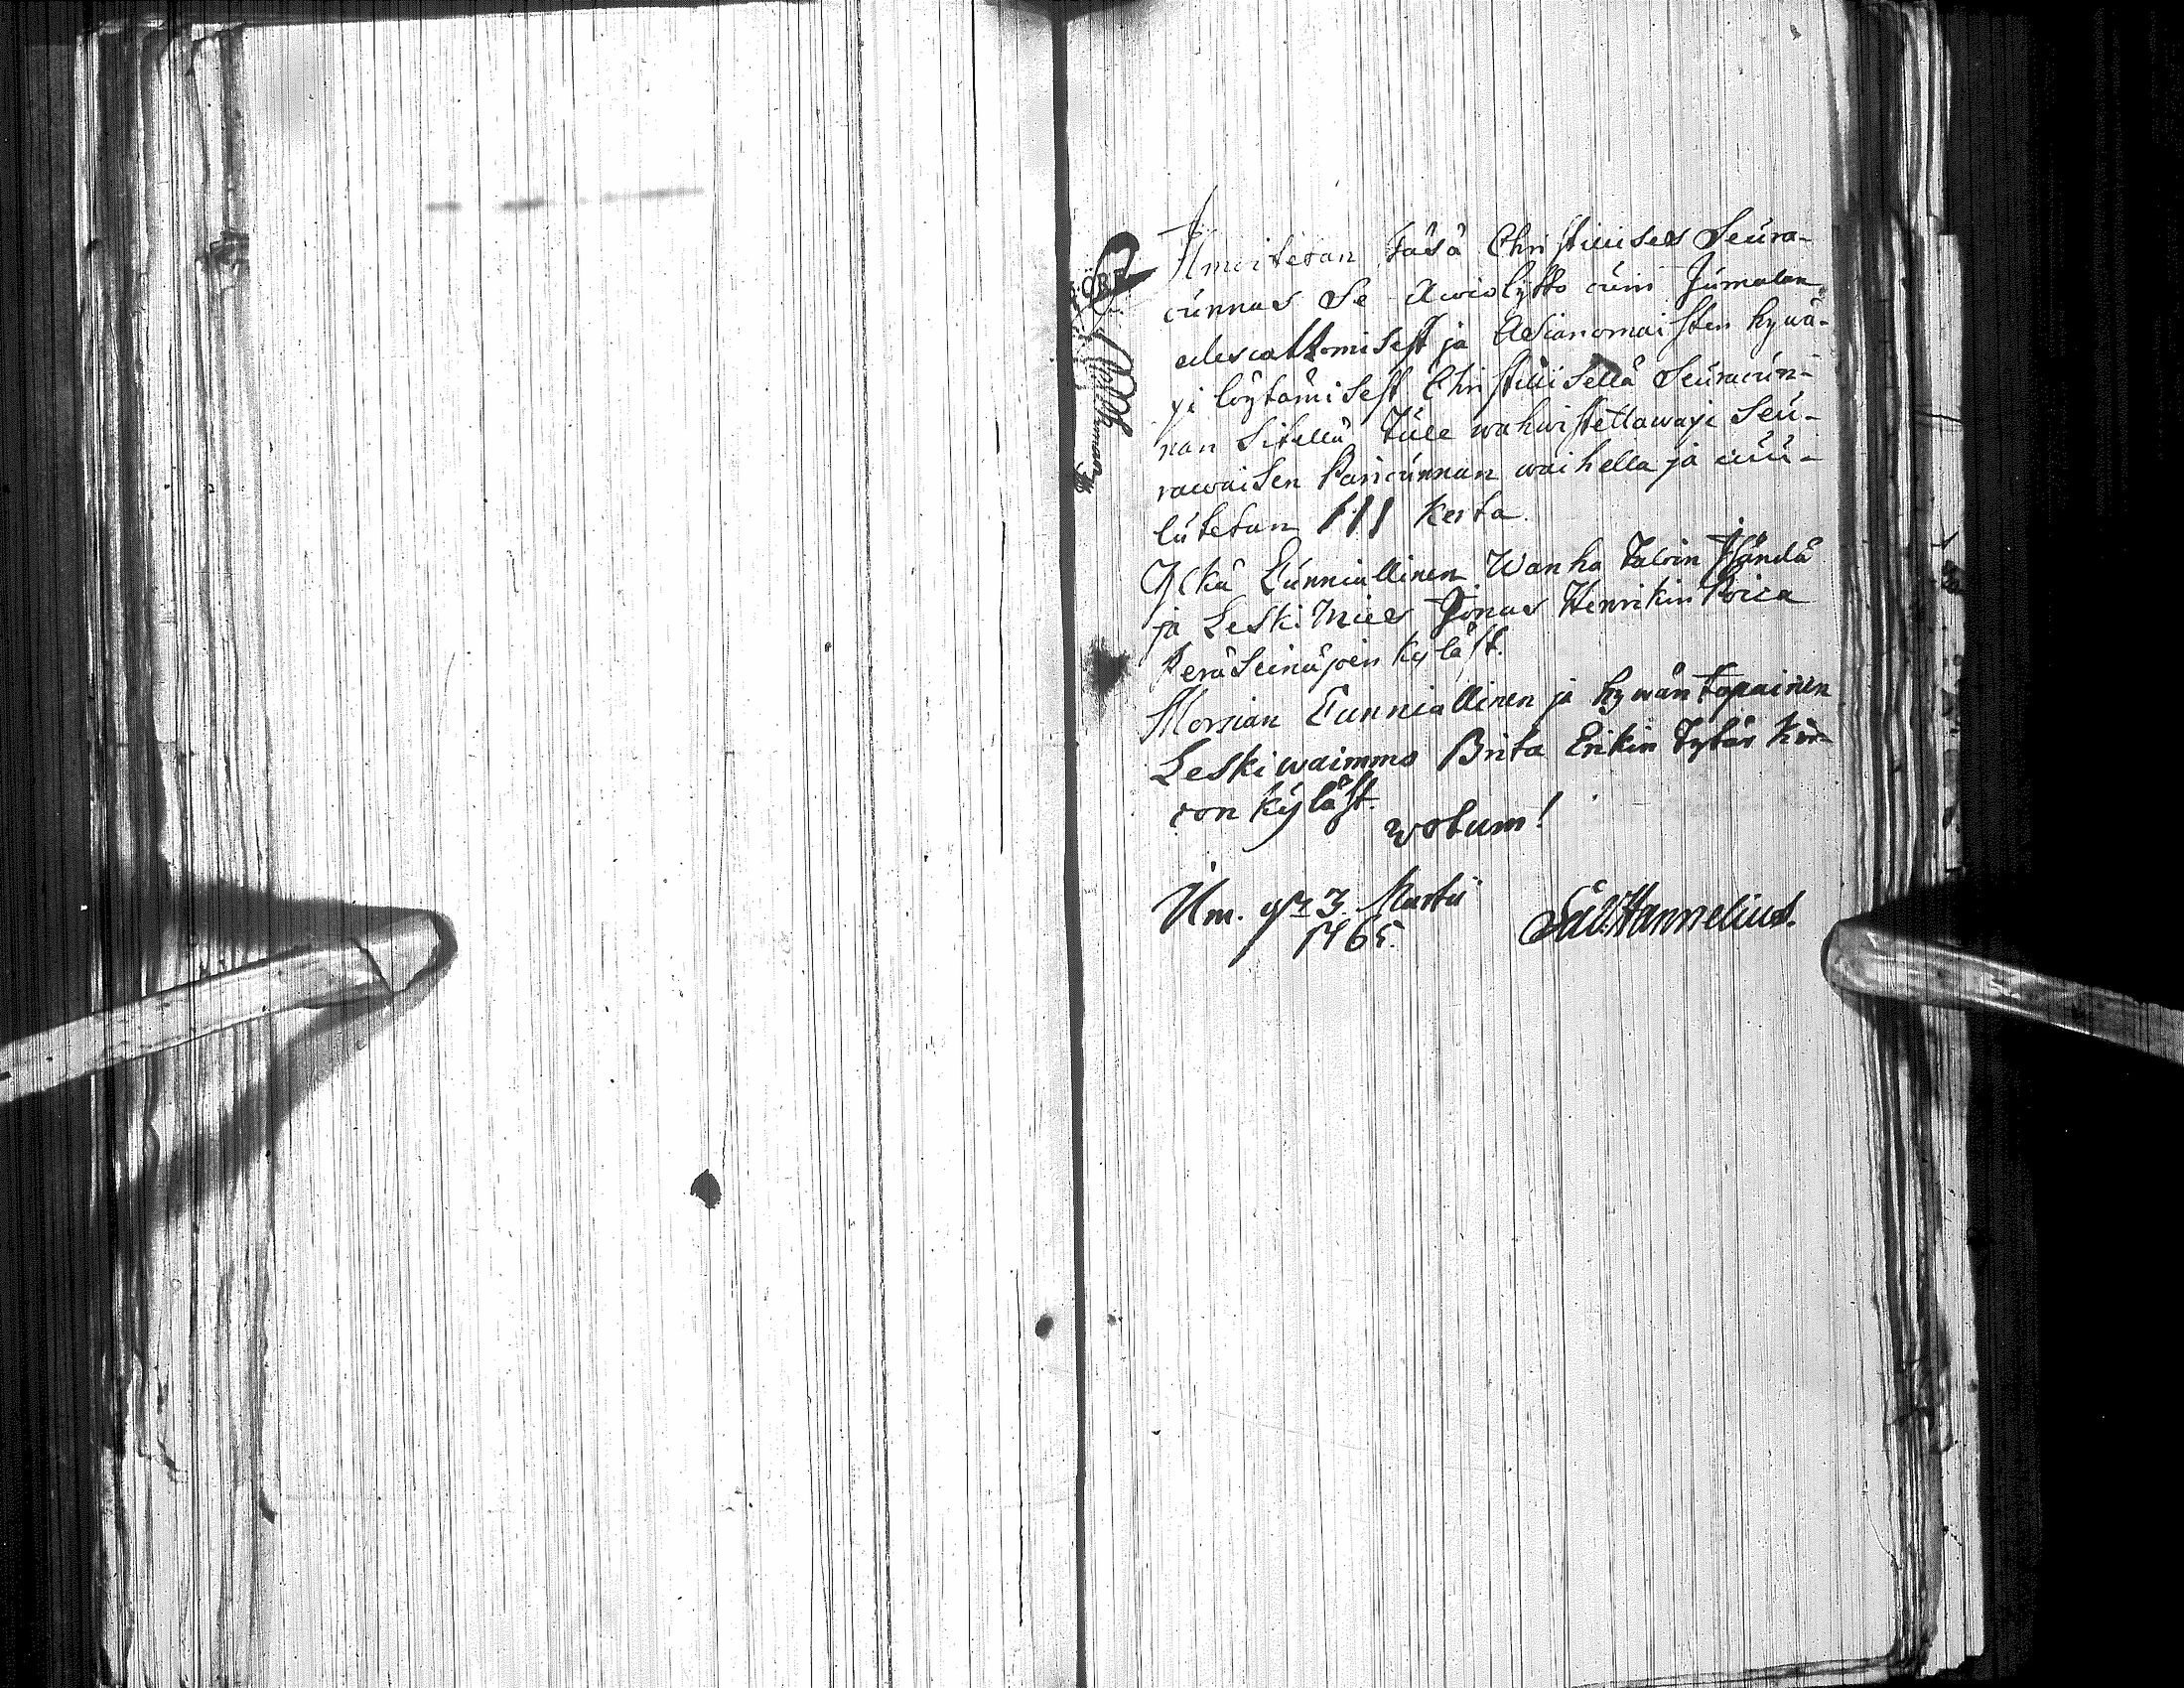 Ilmoitetan täsä Christillises Seura-
cunnas Se Awiokytkö cuin Jumalan
edescattomisest ja Asianomaisten hywä-
xi löytämisest Christillisellä Seuracun-
nan Siteellä tule wahwistettawaxi Seu-
rawaisen Pariscunnan waihella ja cuu-
lutetan III Kerta.
Ylkä Cunniallinen Wanha Talon Isändä
ja Leski Mies Jonas Henrikin Poica
Peräseinäjoen Kyläst.
Morsian Cunniallinen ja hywäntapainen
Leski waimmo Brita Erikin Tytär Kir-
con Kyläst.
votum!
Ilm. 3. Martii
1765.
Sal. Hannelius.